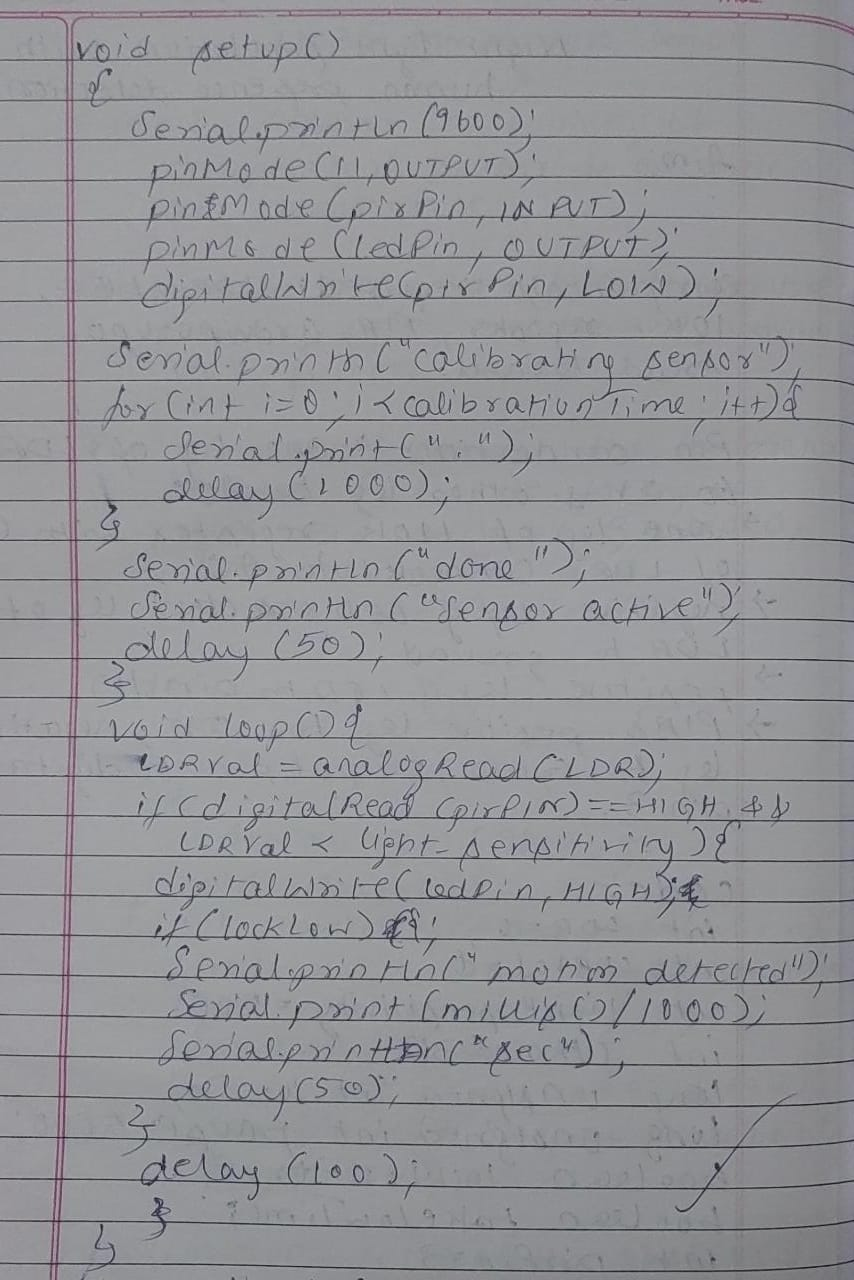 void setup()
{
Serial.println(9600);
pinMode(11,OUTPUT);
pinMode(pirPin, INPUT);
pinMode(ledPin, OUTPUT);
digitalWrite(pirPin, LOW);
Serial.println("calibrating sensor");
for(int i=0; i<calibrationTime; i++){
Serial.print(".");
delay(1000);
}
Serial.println("done");
Serial.println("sensor active");
delay(50);
}
void loop(){
LDRVal = analogRead(LDR);
if(digitalRead(pirPin)==HIGH &&
LDRVal < light_sensitivity){
digitalWrite(ledPin, HIGH);
if(lockLow){;
Serial.println("motion detected");
Serial.print(millis()/1000);
Serial.println("sec");
delay(50);
}
delay(100);
}
}